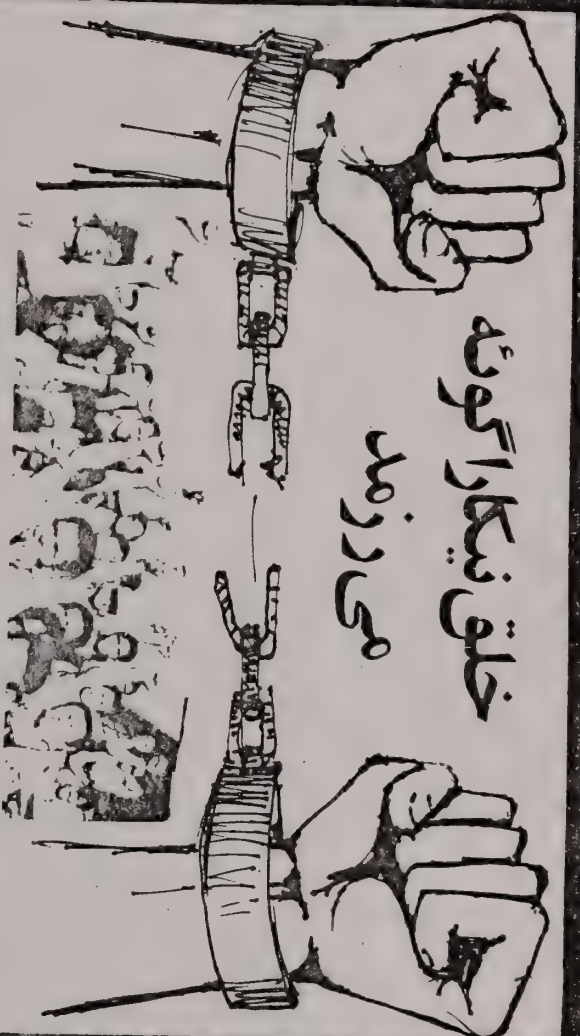 خلق نیکاراگوئه
می رزمد